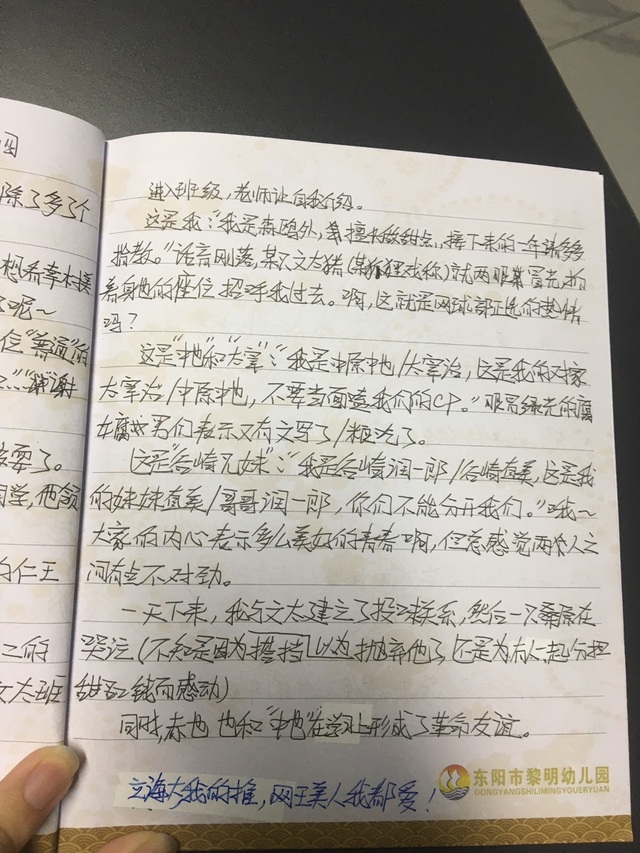 图
除了多了个
想希幸村摸
呢～
位"善演"的
"谢谢
耍了。
同学,他领
的仁王
二的
文太班
进入班级,老师让自我介绍。
这是我:"我是森鸥外,我擅长做甜点,接下来的一年请多多
指教。"话音刚落,某丸文太猪(某狐狸戏称)就两眼冒光,指
着身他的座位招呼我过去。啊,这就是网球部正选的热情
吗?
这是"中也"和"太宰":"我是中原中也/太宰治,这是我的对家
太宰治/中原中也,不要当面造我们的CP。"眼冒绿光的腐
女腐男们表示又有文写了/粮吃了。
这是"谷崎兄妹":"我是谷崎润一郎/谷崎直美,这是我
的妹妹直美/哥哥润一郎,你们不能分开我们。"哦～
大家的内心表示多么美好的青春啊,但总感觉两个人之
间有点不对劲。
一天下来,我与文太建立了投喂联系,然后一旁桑原在
哭泣(不知是因为搭档以为抛弃他了,还是为有人一起分担
甜品钱而感动)
同时,赤也也和"中也"在学习上形成了革命友谊。
立海大我的推,网王美人我都爱!
东阳市黎明幼儿园
DONGYANGSHILIMINGYOUERYUAN